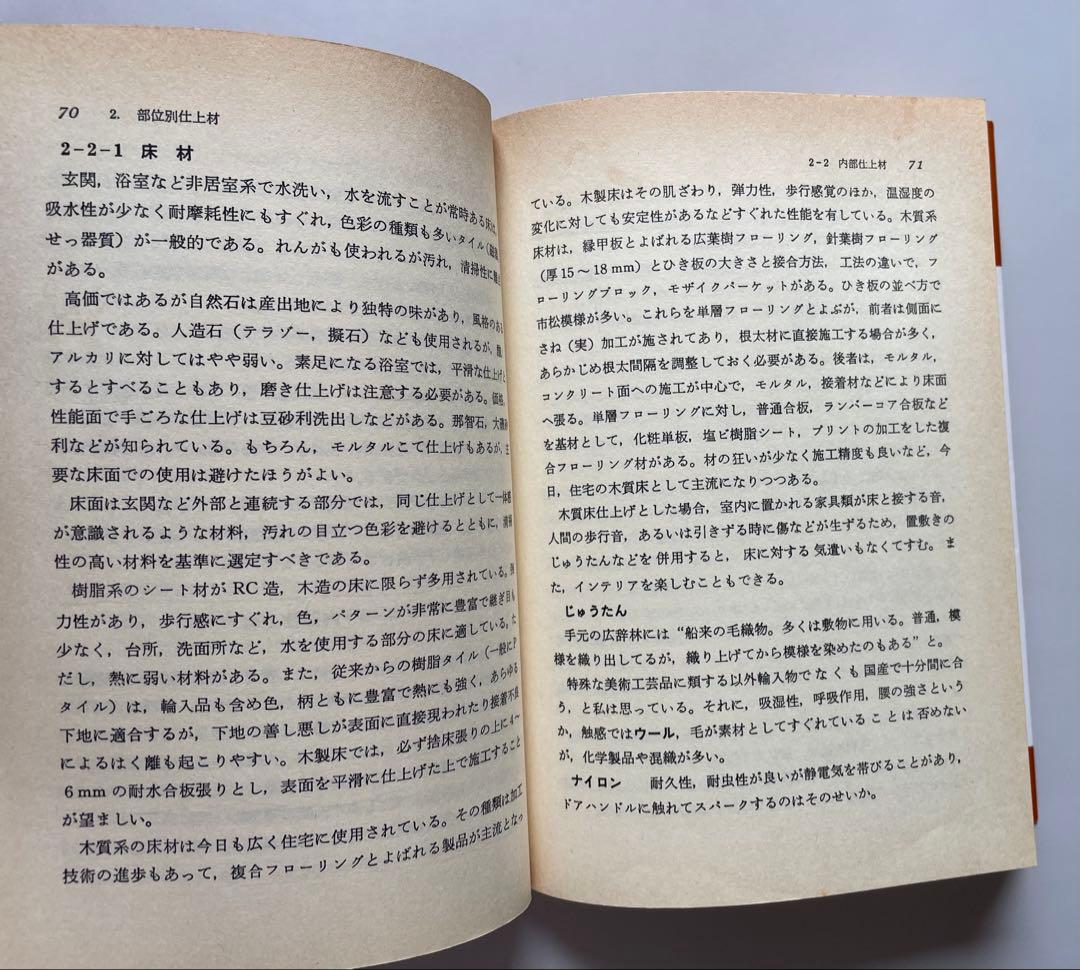 70 2. 部位別仕上材
2-2-1 床 材
玄関，浴室など非居室系で水洗い，水を流すことが常時ある床は
吸水性が少なく耐摩耗性にもすぐれ，色彩の種類も多いタイル（
せっ器質）が一般的である。れんがも使われるが汚れ，清掃性に
がある。
高価ではあるが自然石は産出地により独特の味があり，風格のある
仕上げである。人造石（テラゾー，擬石）なども使用されるが，
アルカリに対してはやや弱い。素足になる浴室では，平滑な仕上げ
するとすべることもあり，磨き仕上げは注意する必要がある。価格，
性能面で手ごろな仕上げは豆砂利洗出しなどがある。那智石，大磯
利などが知られている。もちろん，モルタルこて仕上げもあるが，主
要な床面での使用は避けたほうがよい。
床面は玄関など外部と連続する部分では，同じ仕上げとして一体
が意識されるような材料，汚れの目立つ色彩を避けるとともに，清掃
性の高い材料を基準に選定すべきである。
樹脂系のシート材が RC 造，木造の床に限らず多用されている。弾
力性があり，歩行感にすぐれ，色，パターンが非常に豊富で継ぎ目も
少なく，台所，洗面所など，水を使用する部分の床に適している。た
だし，熱に弱い材料がある。また，従来からの樹脂タイル（一般にP
タイル）は，輸入品も含め色，柄ともに豊富で熱にも強く，あらゆる
下地に適合するが，下地の善し悪しが表面に直接現われたり接着不良
によるはく離も起こりやすい。木製床では，必ず捨床張りの上に4〜
6 mm の耐水合板張りとし，表面を平滑に仕上げた上で施工すること
が望ましい。
木質系の床材は今日も広く住宅に使用されている。その種類は加工
技術の進歩もあって，複合フローリングとよばれる製品が主流となっ
2-2 内部仕上材 71
ている。木製床はその肌ざわり，弾力性，歩行感覚のほか，温湿度の
変化に対しても安定性があるなどすぐれた性能を有している。木質系
床材は，縁甲板とよばれる広葉樹フローリング，針葉樹フローリング
（厚 15〜18 mm）とひき板の大きさと接合方法，工法の違いで，フ
ローリングブロック，モザイクパーケットがある。ひき板の並べ方で
市松模様が多い。これらを単層フローリングとよぶが，前者は側面に
さね（実）加工が施されてあり，根太材に直接施工する場合が多く，
あらかじめ根太間隔を調整しておく必要がある。後者は，モルタル，
コンクリート面への施工が中心で，モルタル，接着材などにより床面
へ張る。単層フローリングに対し，普通合板，ランバーコア合板など
を基材として，化粧単板，塩ビ樹脂シート，プリントの加工をした複
合フローリング材がある。材の狂いが少なく施工精度も良いなど，今
日，住宅の木質床として主流になりつつある。
木質床仕上げとした場合，室内に置かれる家具類が床と接する音，
人間の歩行音，あるいは引きずる時に傷などが生ずるため，置敷きの
じゅうたんなどを併用すると，床に対する気遣いもなくてすむ。ま
た，インテリアを楽しむこともできる。
じゅうたん
手元の広辞林には“船来の毛織物。多くは敷物に用いる。普通，模
様を織り出してるが，織り上げてから模様を染めたのもある”と。
特殊な美術工芸品に類する以外輸入物でなくも国産で十分間に合
う，と私は思っている。それに，吸湿性，呼吸作用，腰の強さという
か，触感ではウール，毛が素材としてすぐれていることは否めない
が，化学製品や混織が多い。
ナイロン 耐久性，耐虫性が良いが静電気を帯びることがあり，
ドアハンドルに触れてスパークするのはそのせいか。